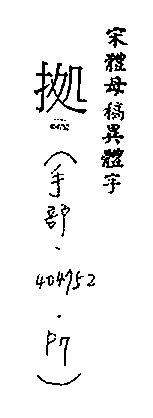 宋體母稿異體字
拠
（手部．404952．P7）